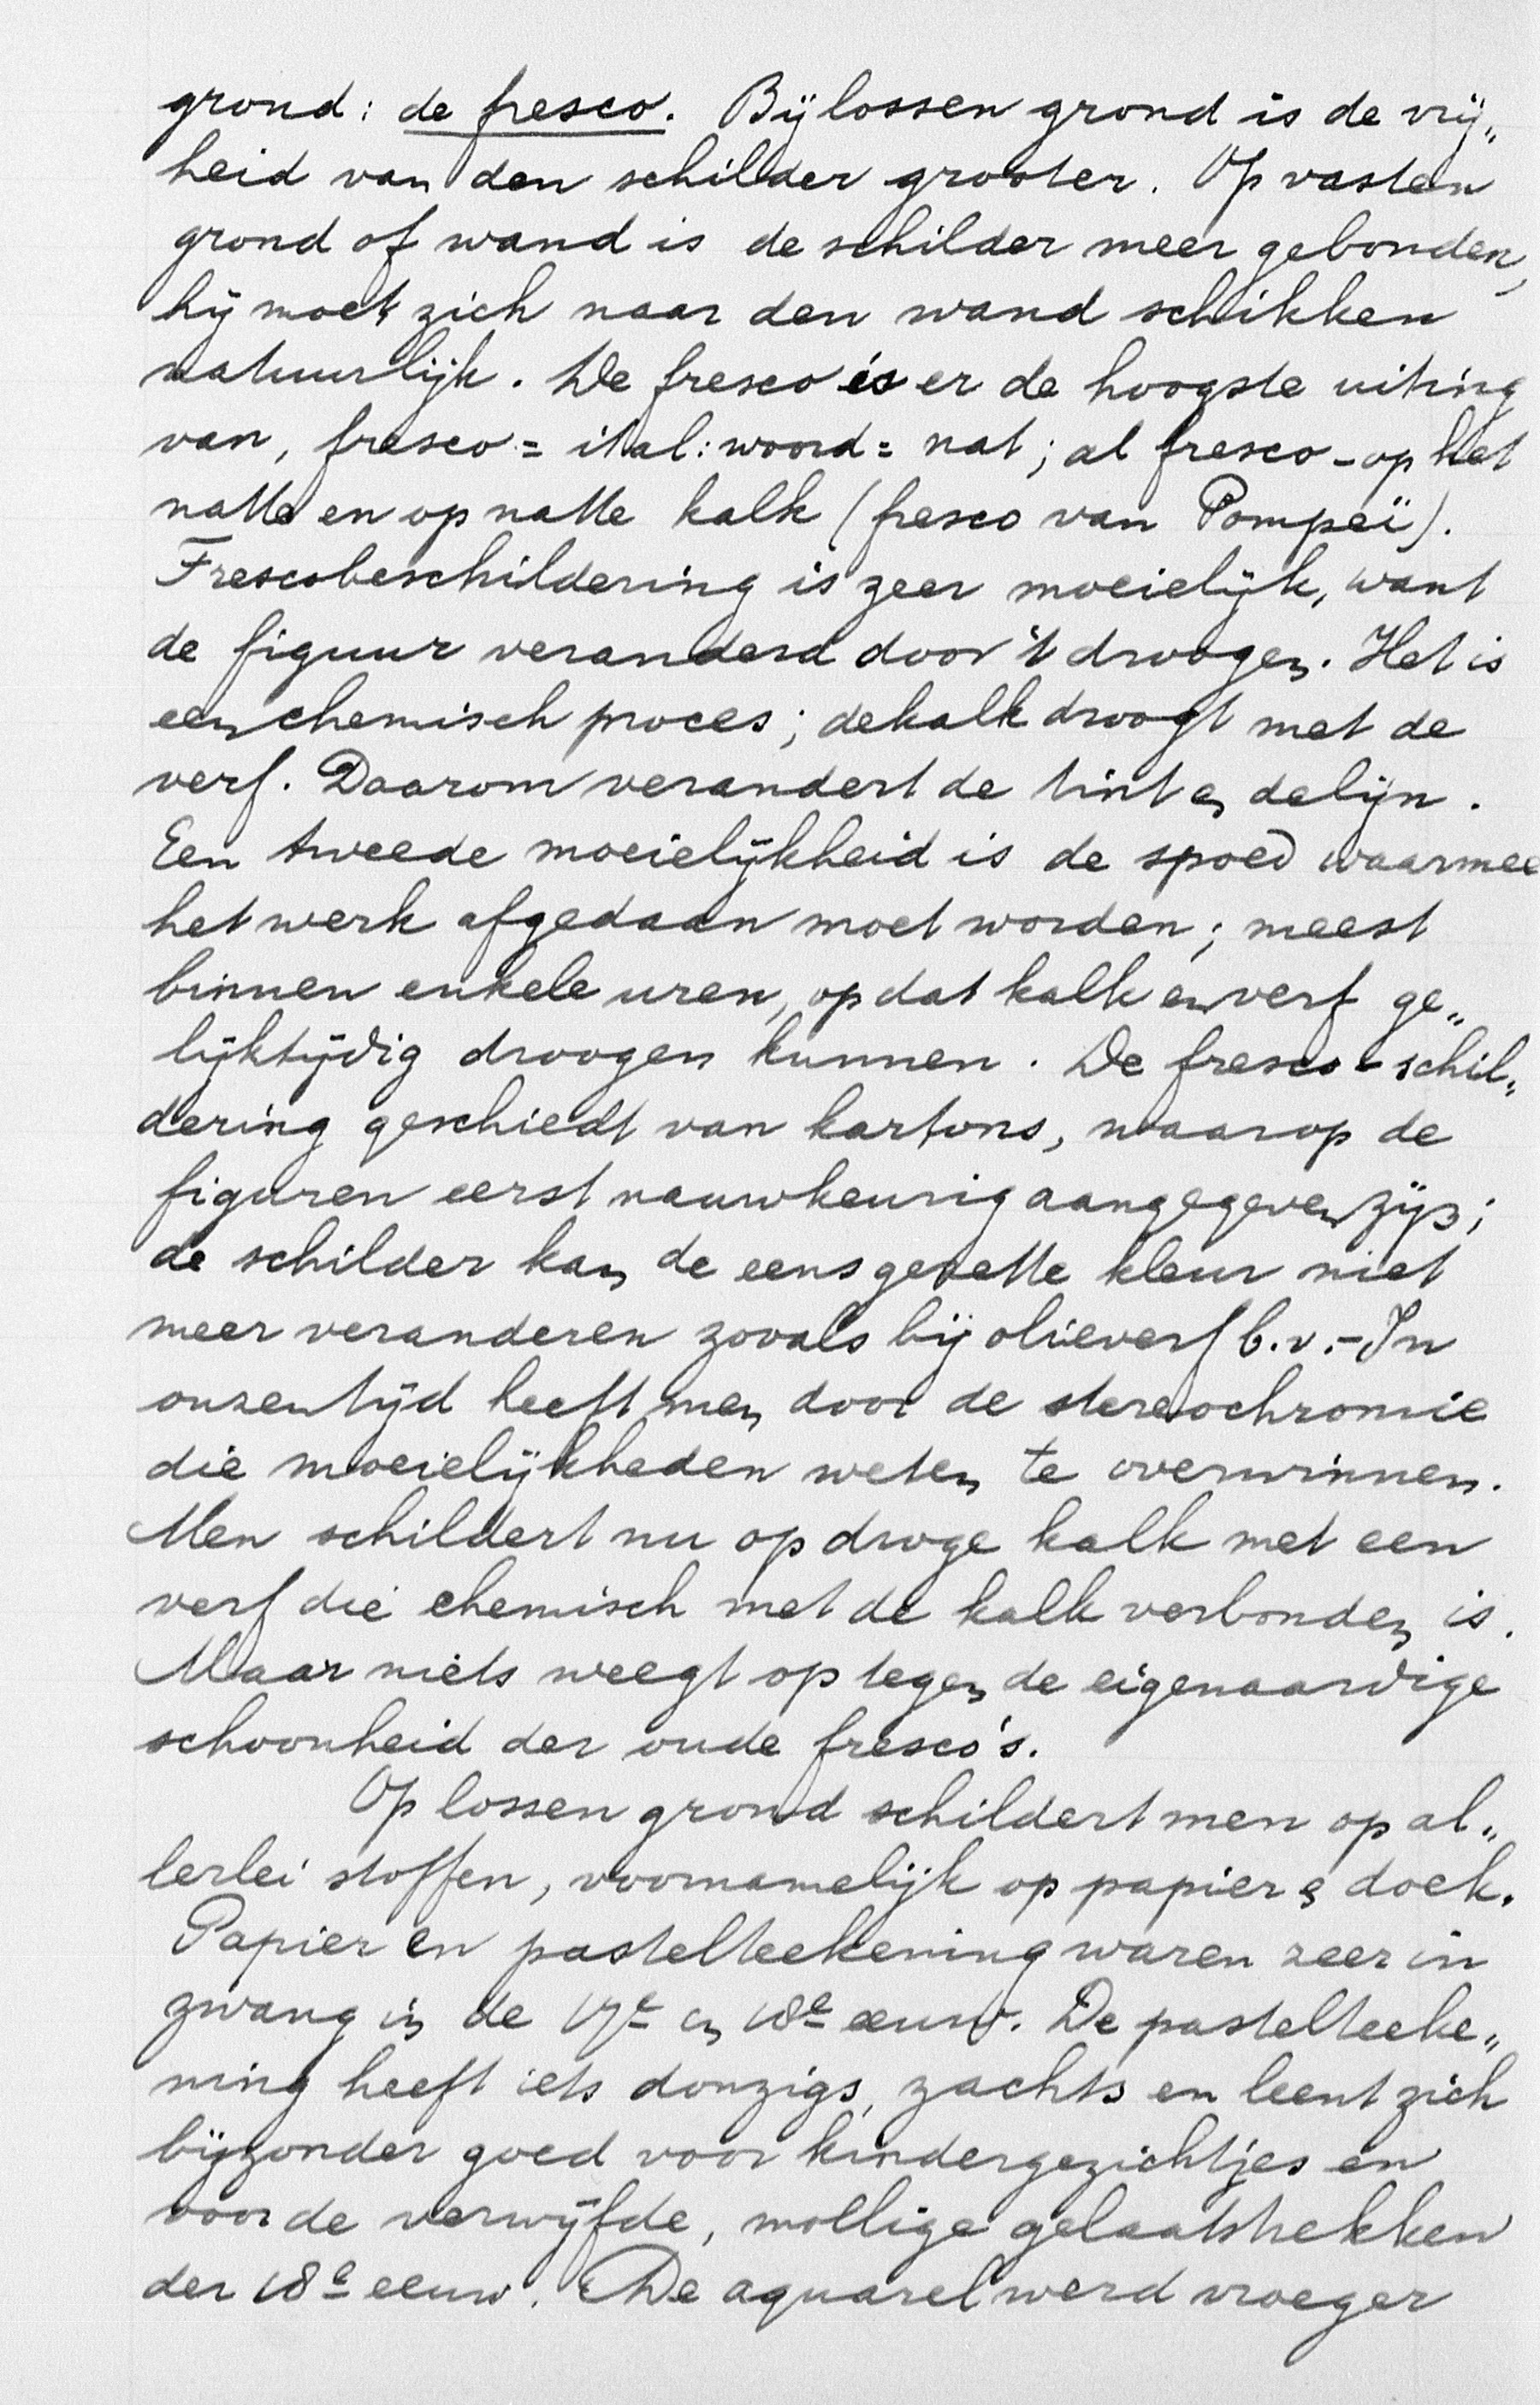 grond: de fresco. Bij lossen grond is de vrij„
heid van den schilder grooter. Op vasten
grond of wand is de schilder meer gebonden,
hij moet zich naar den wand schikken
natuurlijk. De fresco is er de hoogste uiting
van, fresco = ital: woord = nat; al fresco - op het
natte en op natte kalk (fresco van Pompeï).
Frescobeschildering is zeer moeielijk, want
de figuur veranderd door 't droogen. Het is
een chemisch proces; de kalk droogt met de
verf. Daarom verandert de tint en de lijn.
Een tweede moeielijkheid is de spoed waarmee
het werk afgedaan moet worden; meest
binnen enkele uren, opdat kalk en verf ge„
lijktijdig droogen kunnen. De fresco-schil„
dering geschiedt van kartons, waarop de
figuren eerst nauwkeurig aangegeven zijn;
de schilder kan de eens gezette kleur niet
meer veranderen zooals bij olieverf b.v. - In
onzen tijd heeft men door de stereochromie
die moeielijkheden weten te overwinnen.
Men schildert nu op droge kalk met een
verf die chemisch met de kalk verbonden is.
Maar niets weegt op tegen de eigenaardige
schoonheid der oude fresco's.
Op lossen grond schildert men op al„
lerlei stoffen, voornamelijk op papier en doek.
Papier en pastelteekening waren zeer in
zwang in de 17e en 18e eeuw. De pastelteeke„
ning heeft iets donzigs, zachts en leent zich
bijzonder goed voor kindergezichtjes en
voor de verwijfde, mollige gelaatstrekken
der 18e eeuw. De aquarel werd vroeger